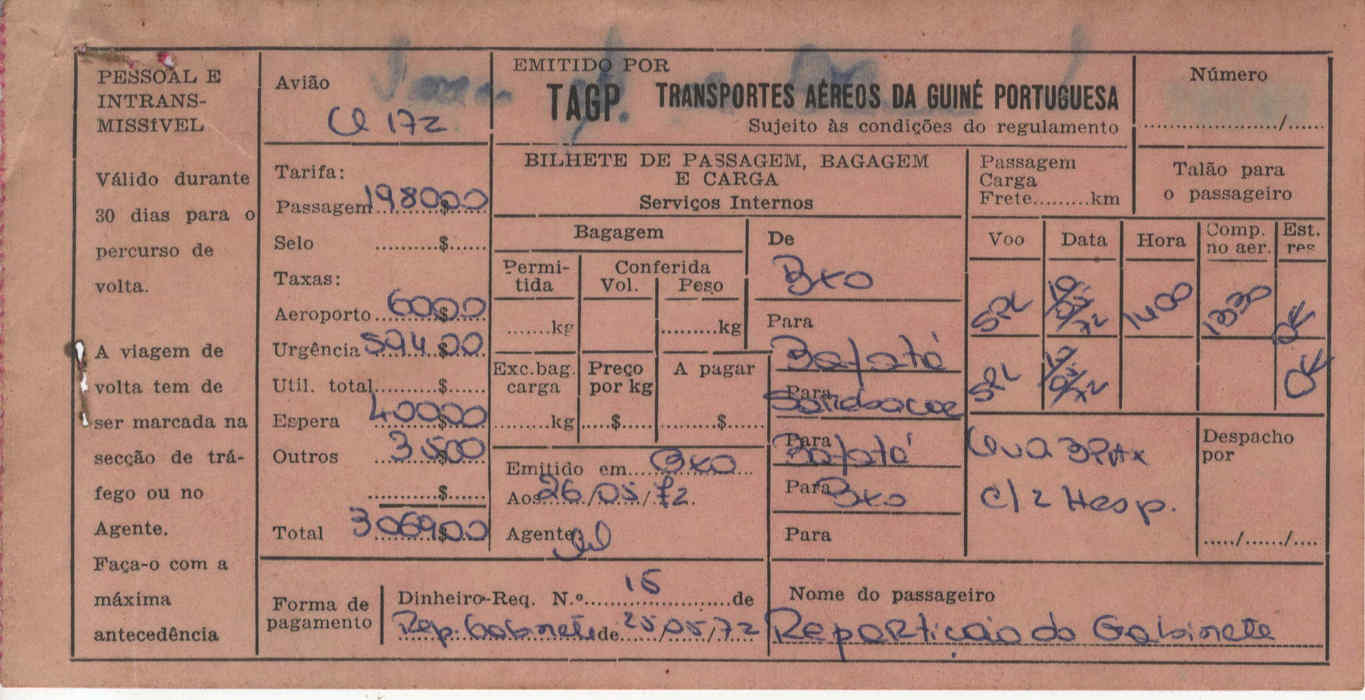 PESSOAL E
INTRANS-
MISSÍVEL
Válido durante
30 dias para o
percurso de
volta.
A viagem de
volta tem de
ser marcada na
secção de trá-
fego ou no
Agente.
Faça-o com a
máxima
antecedência
Avião
Cl 172
Tarifa:
Passagem 1980$00
Selo ..........$......
Taxas:
Aeroporto 60$00
Urgência 594$00
Util. total ........$......
Espera 400$00
Outros 35$00
..........$......
Total 3069$00
EMITIDO POR
TAGP. TRANSPORTES AÉREOS DA GUINÉ PORTUGUESA
Sujeito às condições do regulamento
Número
....................../......
BILHETE DE PASSAGEM, BAGAGEM
E CARGA
Serviços Internos
Passagem
Carga
Frete.........km
Talão para
o passageiro
Bagagem
Permi-
tida
Conferida
Vol. Peso
.......kg
.........kg
Exc.bag.
carga
Preço
por kg
A pagar
.........kg
....$.....
.........$......
Emitido em Bxo
Aos 26/05/72.
Agente
De
Bxo
Para
Bafatá
Para
Para
Bafatá
Para Bxo
Para
Voo Data Hora Comp. no aer. Est. res
SPL 1400 1330 OK
SPL OK
3PAX
c/2 Hesp.
Despacho
por
...../....../....
Forma de
pagamento
Dinheiro-Req. N.º 15 de
Rep. Gabinete de 25/05/72
Nome do passageiro
Repartição do Gabinete